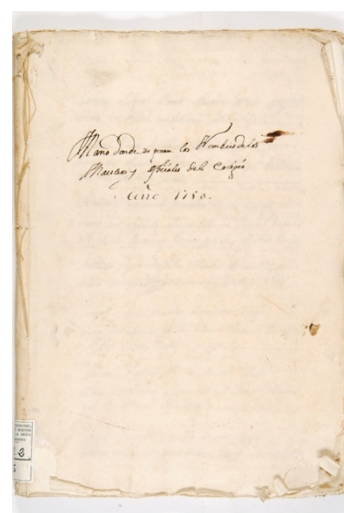 Mano donde se ponen los Nombres de los
Maestros y oficiales del Colegio
Año 1750.
2